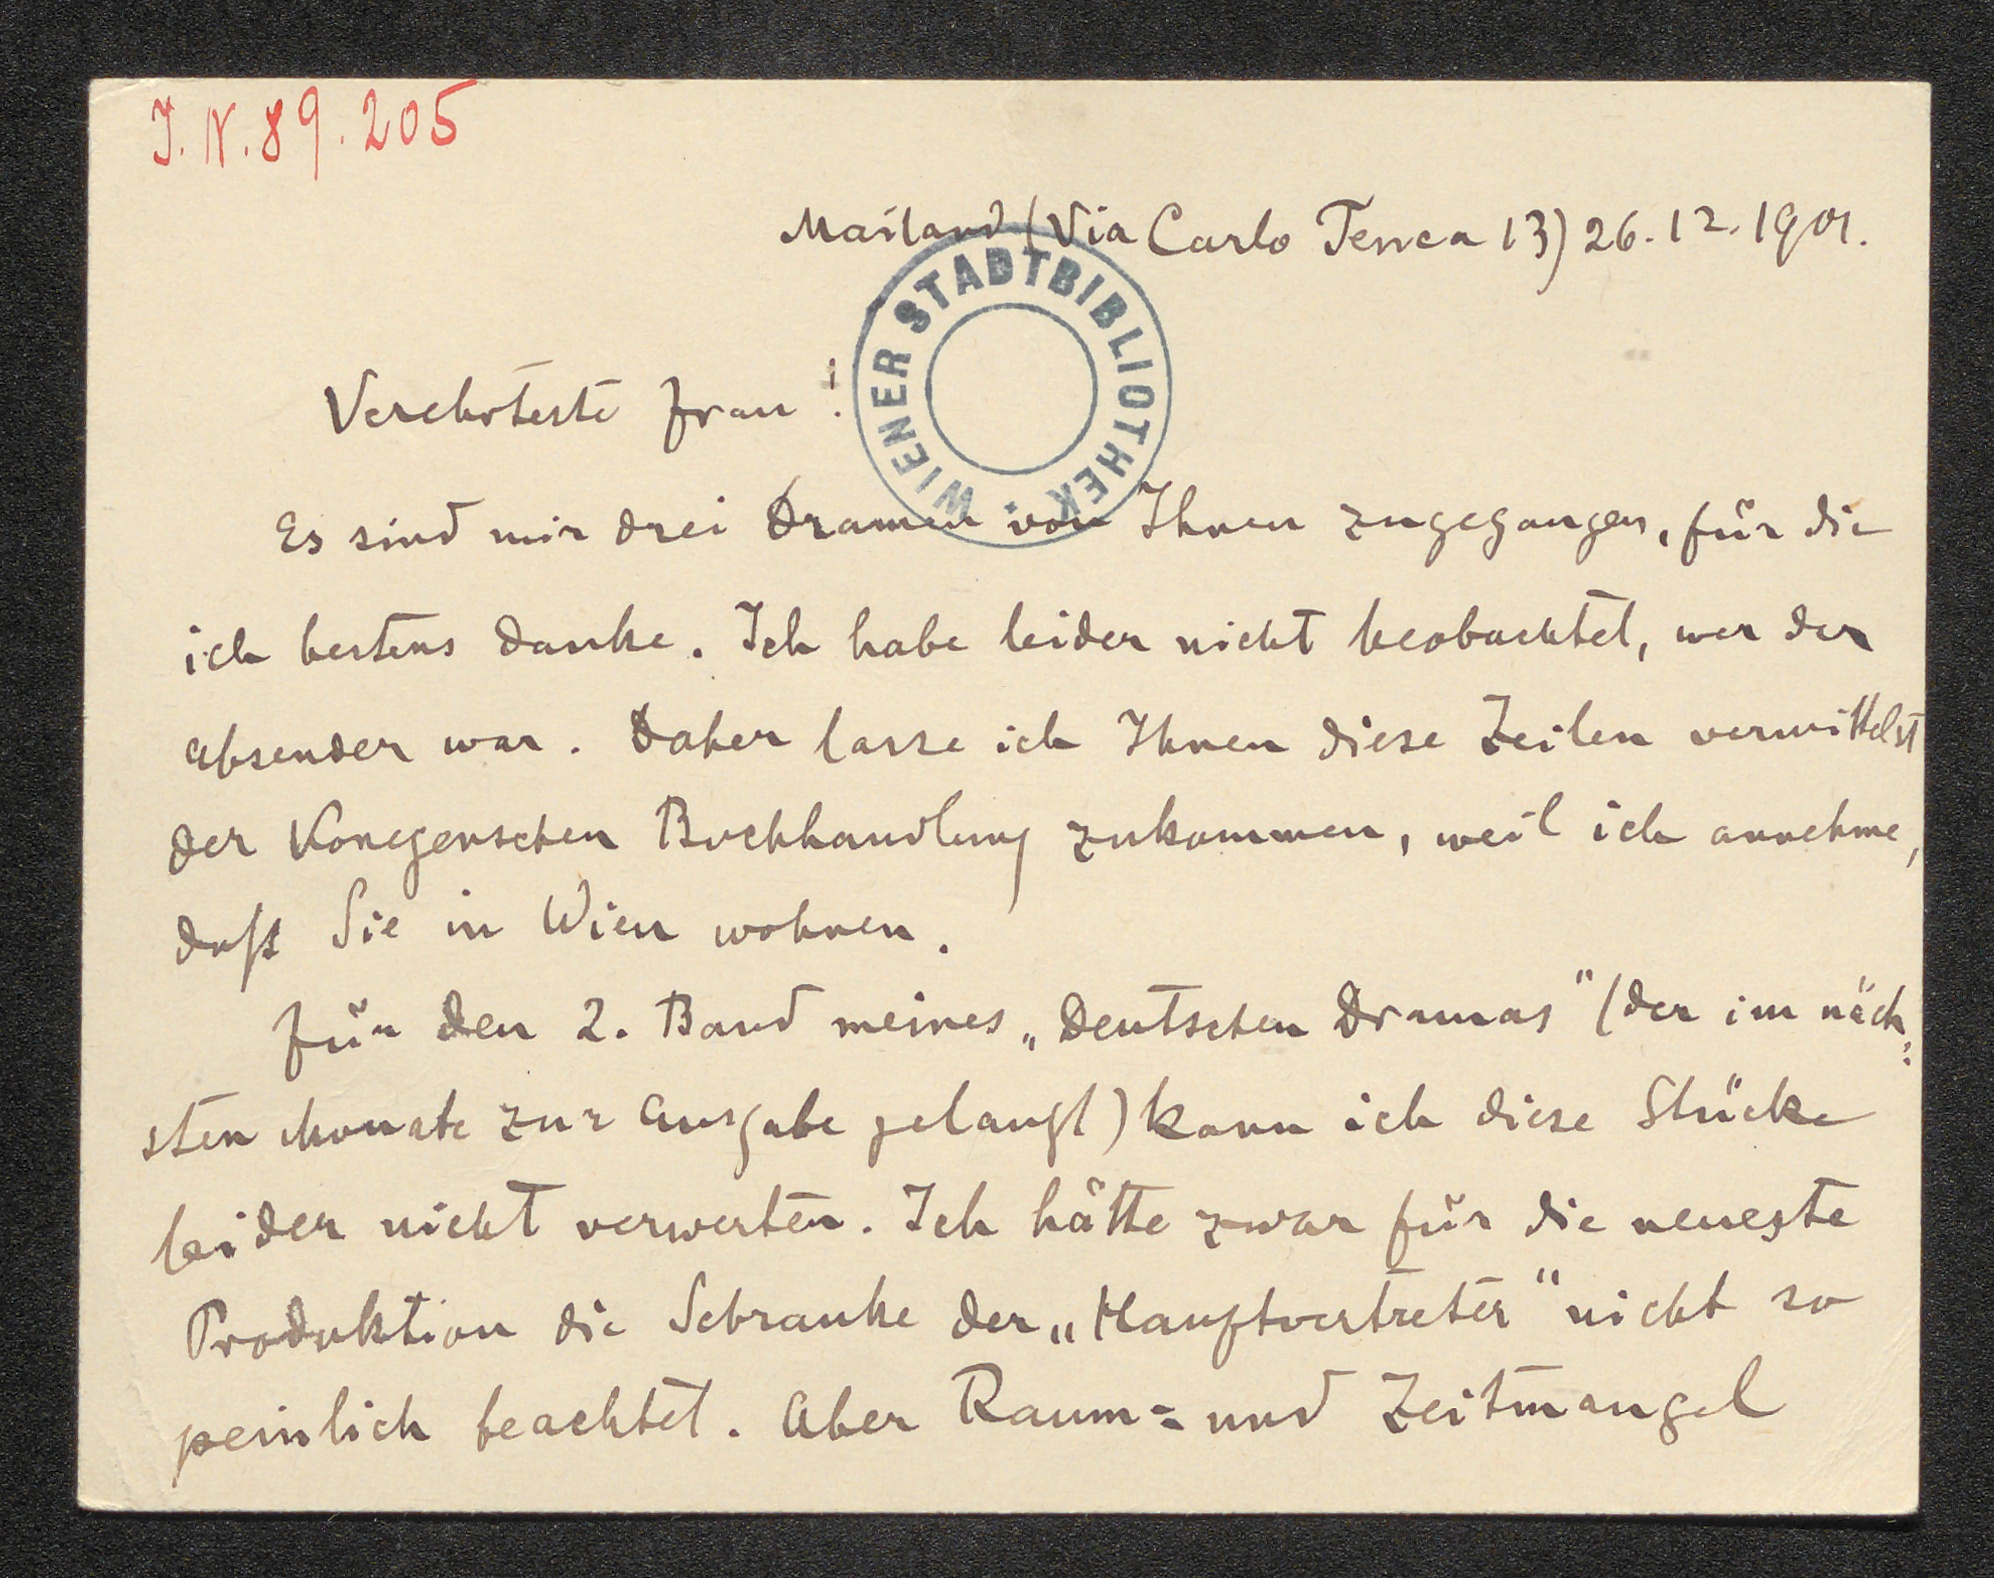 J. N. 89.205
Mailand (Via Carlo Tenca 13) 26.12.1901.
WIENER STADTBIBLIOTHEK.
Verehrteste Frau!
Es sind mir drei Dramen von Ihnen zugegangen, für die
ich bestens danke. Ich habe leider nicht beobachtet, wer der
Absender war. Daher lasse ich Ihnen diese Zeilen vermittelst
der Konegenschen Buchhandlung zukommen, weil ich annehme,
daß Sie in Wien wohnen.
Für den 2. Band meines „Deutschen Dramas" (der im näch=
sten Monate zur Ausgabe gelangt) kann ich diese Stücke
leider nicht verwerten. Ich hätte zwar für die neueste
Produktion die Schranke der „Hauptvertreter" nicht so
peinlich beachtet. Aber Raum= und Zeitmangel